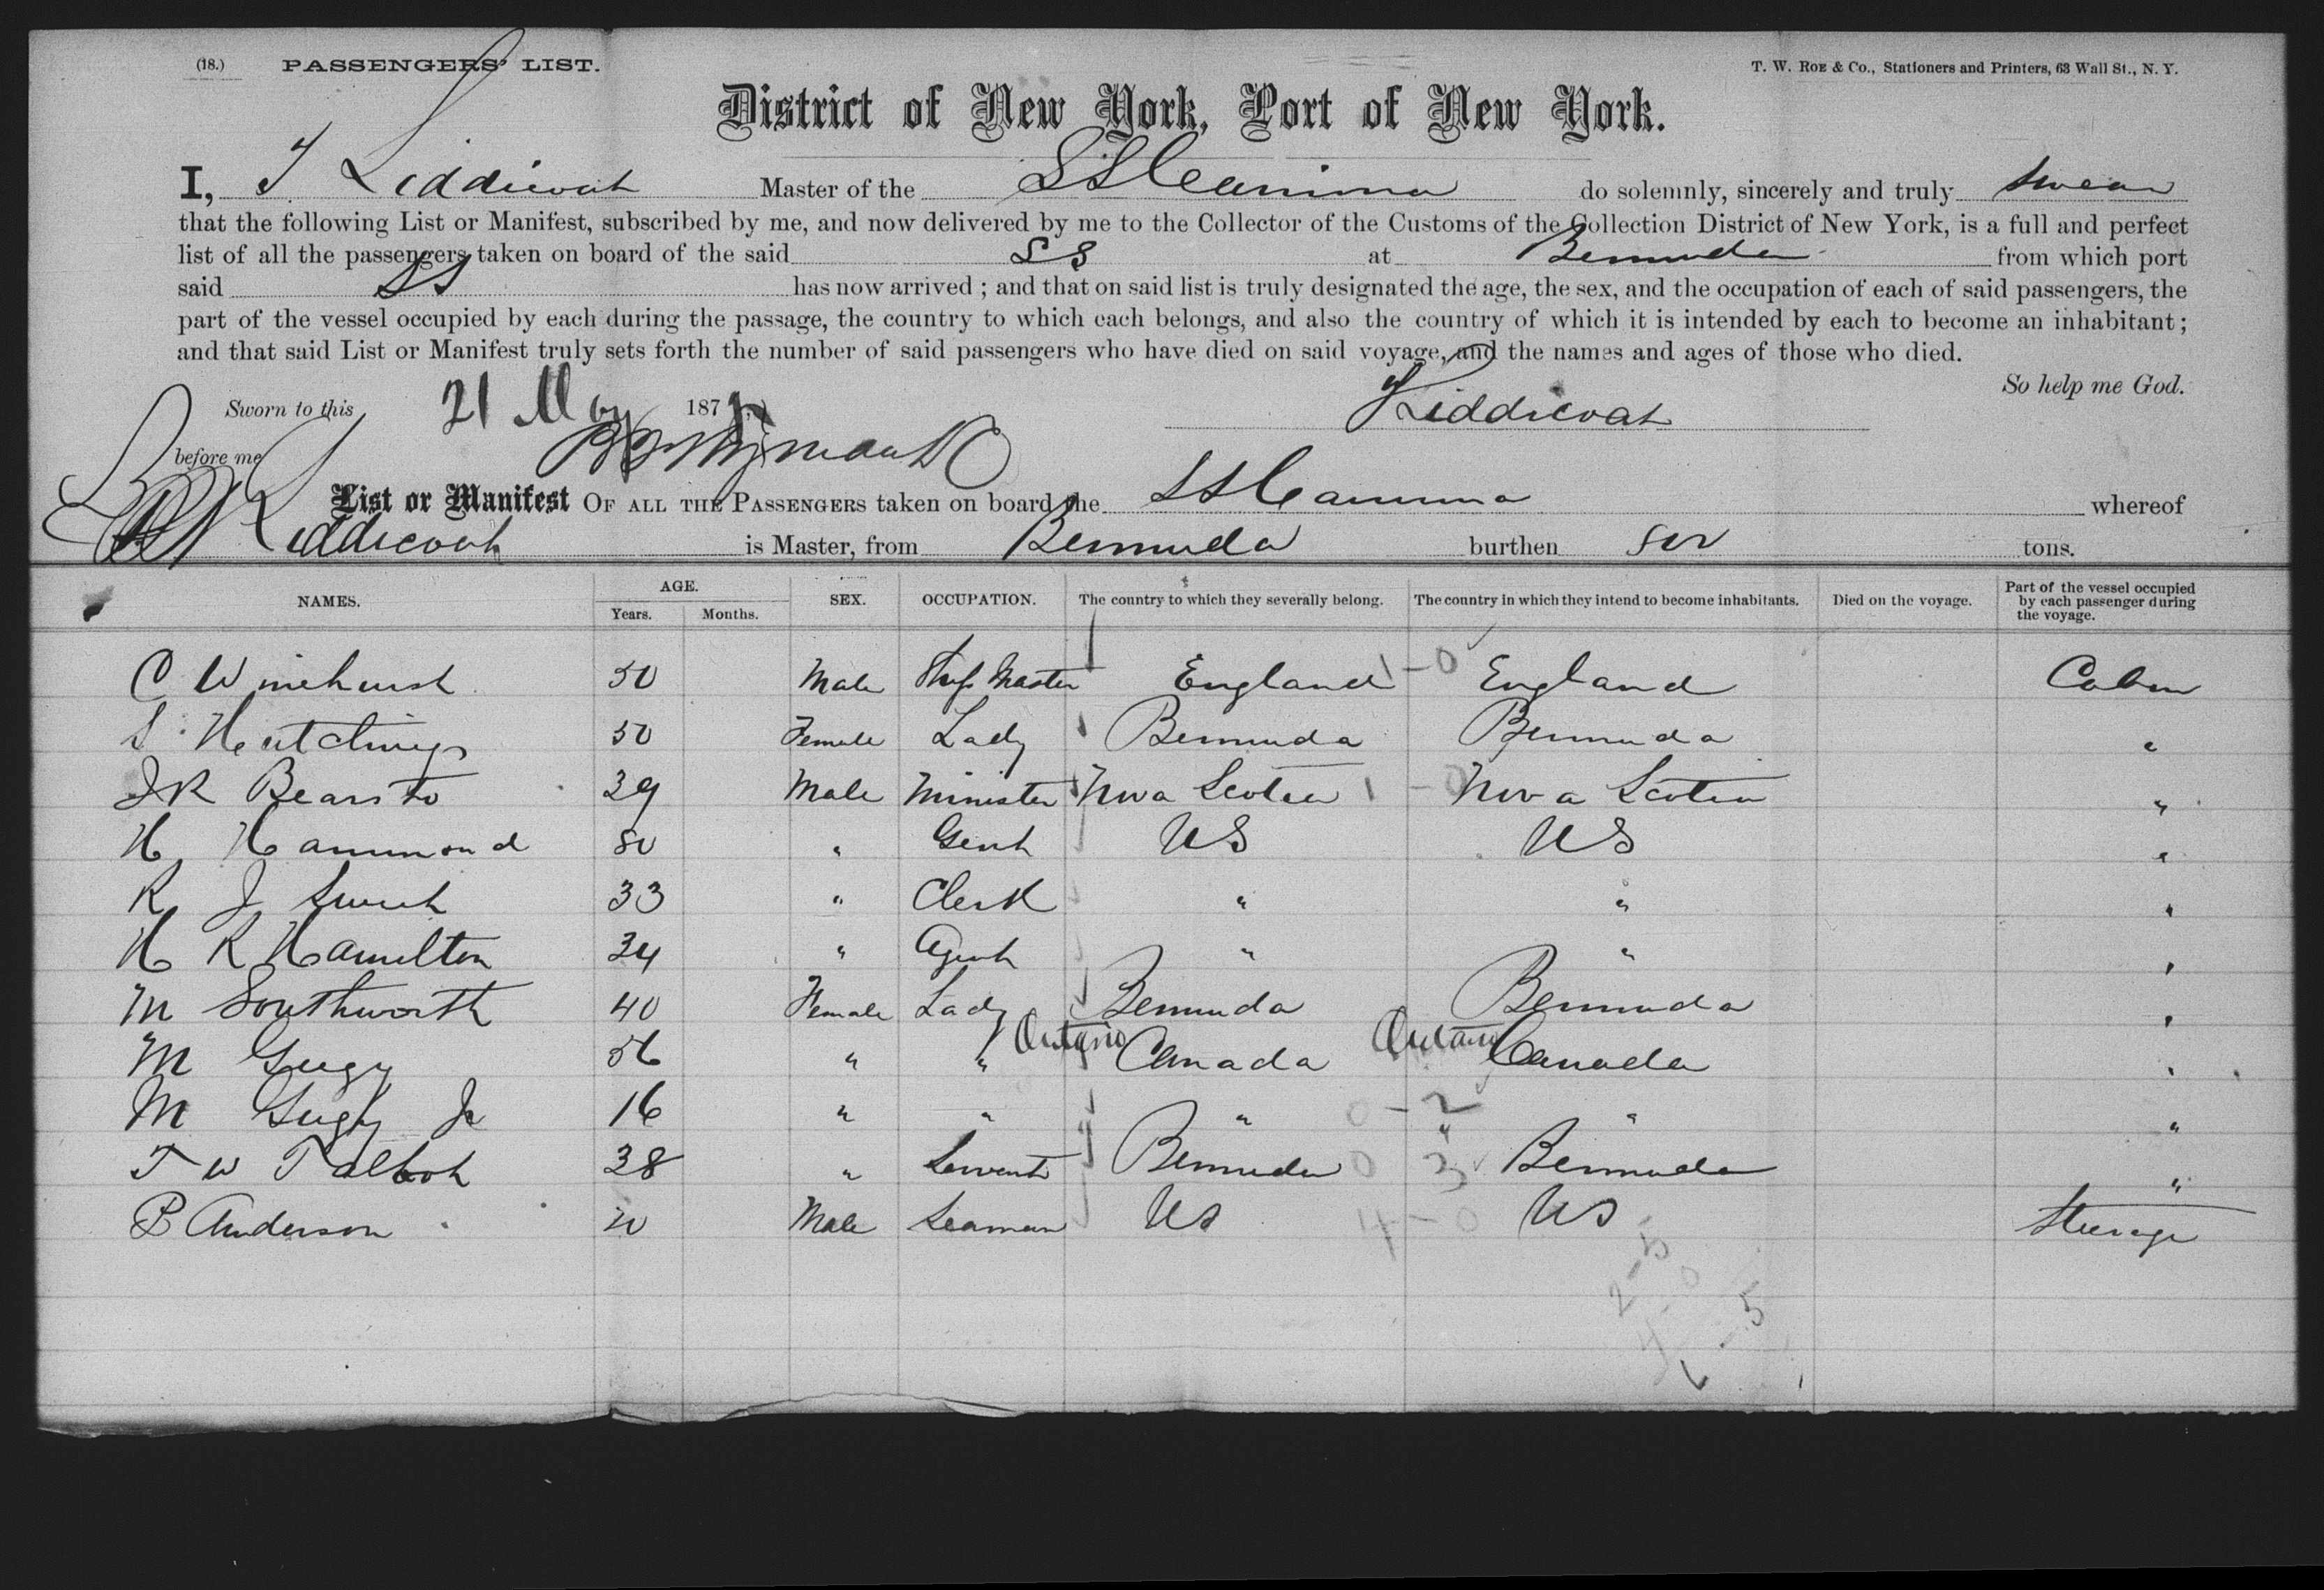 (18.) PASSENGERS' LIST. T. W. ROE & Co., Stationers and Printers, 63 Wall St., N. Y.
District of New York, Port of New York.
I, J Liddicoat Master of the SS Canima do solemnly, sincerely and truly swear
that the following List or Manifest, subscribed by me, and now delivered by me to the Collector of the Customs of the Collection District of New York, is a full and perfect
list of all the passengers taken on board of the said SS at Bermuda from which port
said SS has now arrived ; and that on said list is truly designated the age, the sex, and the occupation of each of said passengers, the
part of the vessel occupied by each during the passage, the country to which each belongs, and also the country of which it is intended by each to become an inhabitant ;
and that said List or Manifest truly sets forth the number of said passengers who have died on said voyage, and the names and ages of those who died.
So help me God.
Sworn to this 21 May 187 Liddicoat
before me
List or Manifest OF ALL THE PASSENGERS taken on board the SS Canima whereof
Liddicoat is Master, from Bermuda burthen tons.
NAMES. AGE. Years. Months. SEX. OCCUPATION. The country to which they severally belong. The country in which they intend to become inhabitants. Died on the voyage. Part of the vessel occupied by each passenger during the voyage.
C Winehurst 50 Male Master England 1-0 England Cabin
S Hutchings 50 Female Lady Bermuda Bermuda "
JR Bearsto 39 Male Minister Nova Scotia 1-0 Nova Scotia "
H Hammond 50 " Gent US US "
R J 33 " Clerk " " "
H R Hamilton 34 " Agent " " "
M Southworth 40 Female Lady Bermuda Bermuda "
M Gugy 56 " " Ontario Canada Ontario Canada "
M Gugy Jr 16 " " " 0-2 " "
T W Talbot 38 " Servant Bermuda 0 3 Bermuda "
B Anderson 20 Male Seaman US 4-0 US Steerage
2-5
4-0
6-5